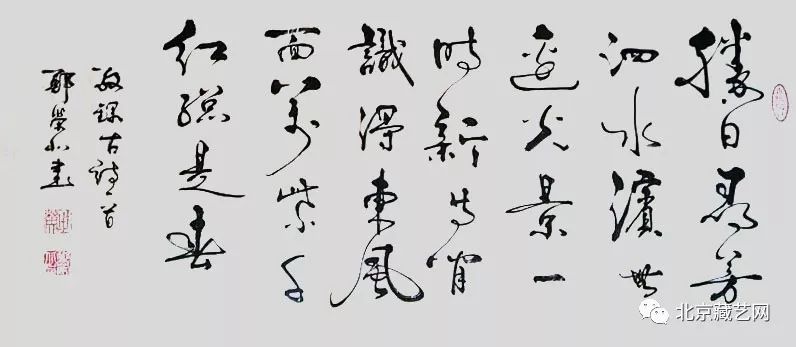 勝日尋芳
泗水濱無
邊光景一
時新等閒
識得東風
面萬紫千
紅總是春
敬録古詩一首
鄭書
北京藏艺网